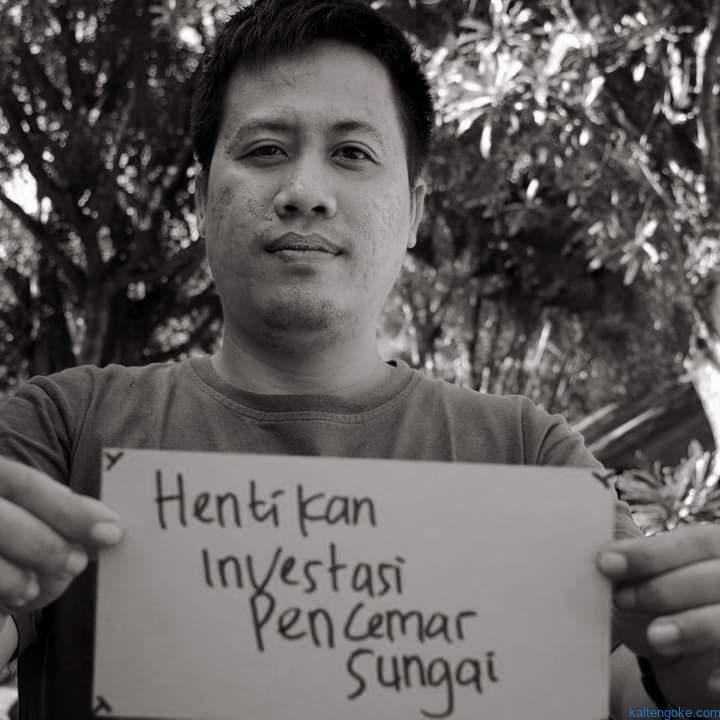 Hentikan
Investasi
Pencemar
Sungai
kaltengoke.com